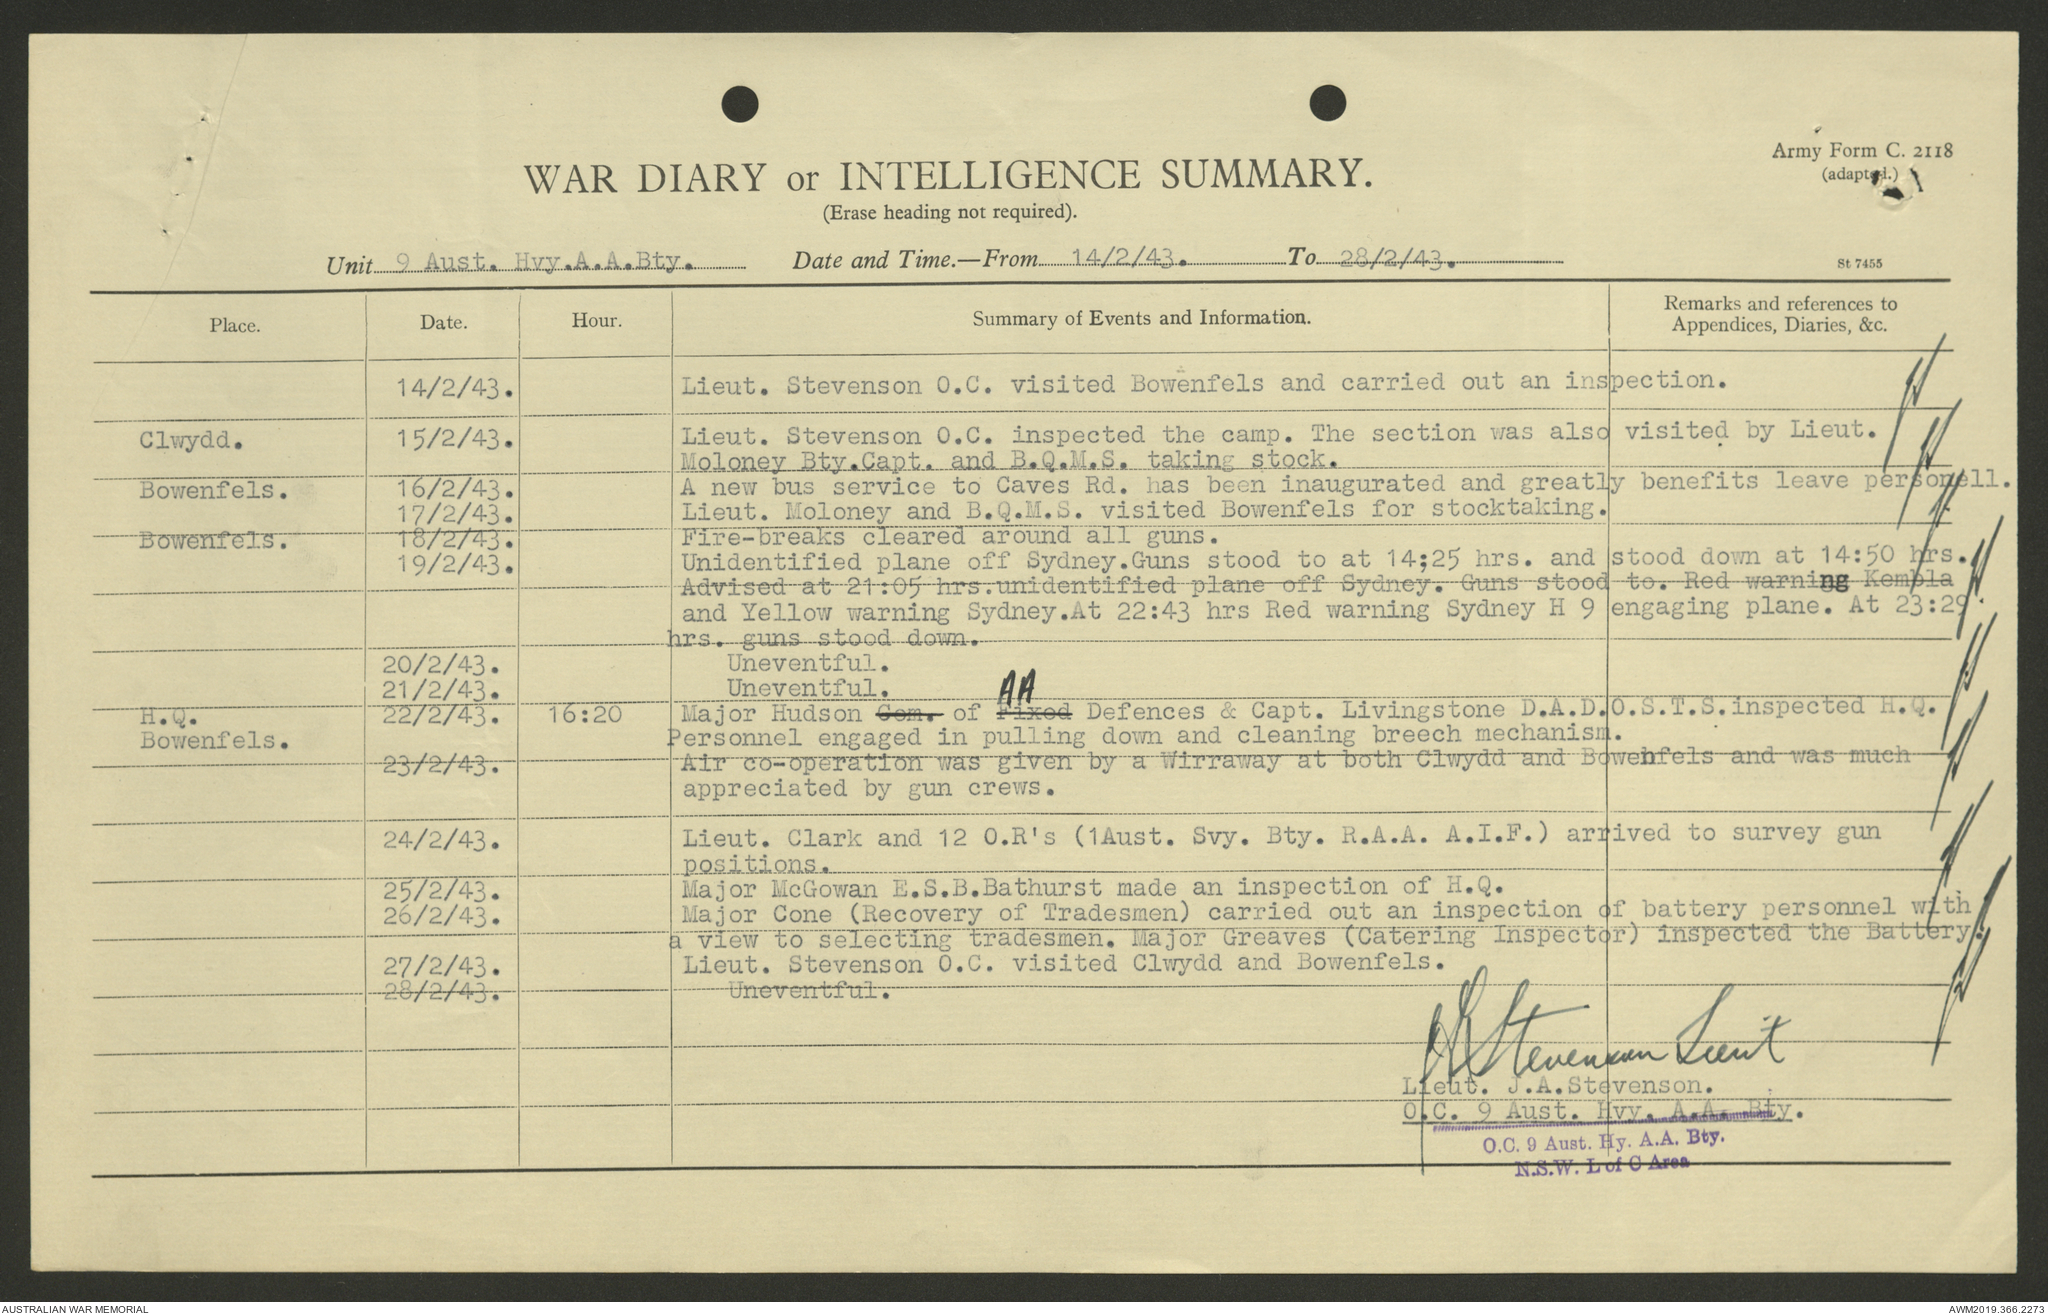 Army Form C. 2118
(adapted.)
WAR DIARY or INTELLIGENCE SUMMARY.
(Erase heading not required).
Unit 9 Aust. Hvy.A.A.Bty. Date and Time.—From 14/2/43. To 28/2/43.
St 7455
Place. Date. Hour. Summary of Events and Information. Remarks and references to
Appendices, Diaries, &c.
14/2/43. Lieut. Stevenson O.C. visited Bowenfels and carried out an inspection.
Clwydd. 15/2/43. Lieut. Stevenson O.C. inspected the camp. The section was also visited by Lieut.
Moloney Bty.Capt. and B.Q.M.S. taking stock.
Bowenfels. 16/2/43. A new bus service to Caves Rd. has been inaugurated and greatly benefits leave personell.
17/2/43. Lieut. Moloney and B.Q.M.S. visited Bowenfels for stocktaking.
Bowenfels. 18/2/43. Fire-breaks cleared around all guns.
19/2/43. Unidentified plane off Sydney.Guns stood to at 14;25 hrs. and stood down at 14:50 hrs.
Advised at 21:05 hrs.unidentified plane off Sydney. Guns stood to. Red warning Kembla
and Yellow warning Sydney.At 22:43 hrs Red warning Sydney H 9 engaging plane. At 23:29
hrs. guns stood down.
20/2/43. Uneventful.
21/2/43. Uneventful.
AA
H.Q. 22/2/43. 16:20 Major Hudson Com. of Fixed Defences & Capt. Livingstone D.A.D.O.S.T.S.inspected H.Q.
Bowenfels. Personnel engaged in pulling down and cleaning breech mechanism.
23/2/43. Air co-operation was given by a Wirraway at both Clwydd and Bowenfels and was much
appreciated by gun crews.
24/2/43. Lieut. Clark and 12 O.R's (1Aust. Svy. Bty. R.A.A. A.I.F.) arrived to survey gun
positions.
25/2/43. Major McGowan E.S.B.Bathurst made an inspection of H.Q.
26/2/43. Major Cone (Recovery of Tradesmen) carried out an inspection of battery personnel with
a view to selecting tradesmen. Major Greaves (Catering Inspector) inspected the Battery.
27/2/43. Lieut. Stevenson O.C. visited Clwydd and Bowenfels.
28/2/43. Uneventful.
Stevenson Lieut
Lieut. J.A.Stevenson.
O.C. 9 Aust. Hvy. A.A. Bty.
O.C. 9 Aust. Hy. A.A. Bty.
N.S.W. L of C Area
AUSTRALIAN WAR MEMORIAL AWM2019.366.2273